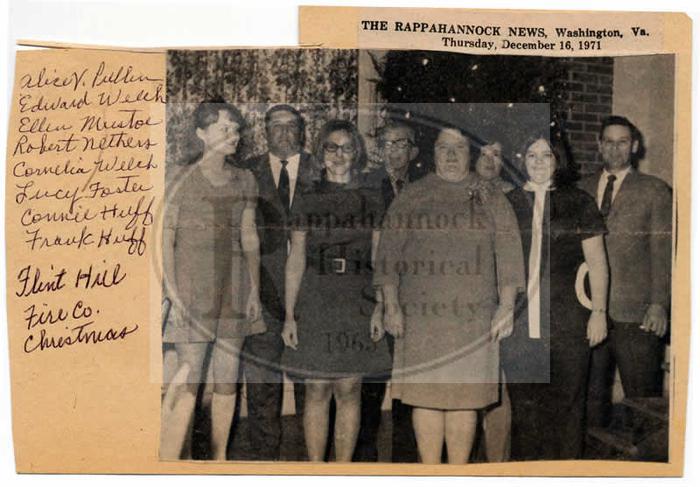 THE RAPPAHANNOCK NEWS, Washington, Va.
Thursday, December 16, 1971
Alice V. Pullen
Edward Welch
Ellen Mustoe
Robert Nethers
Cornelia Welch
Lucy Foster
Connie Huff
Frank Huff
Flint Hill
Fire Co.
Christmas
Rappahannock
Historical
Society
1965